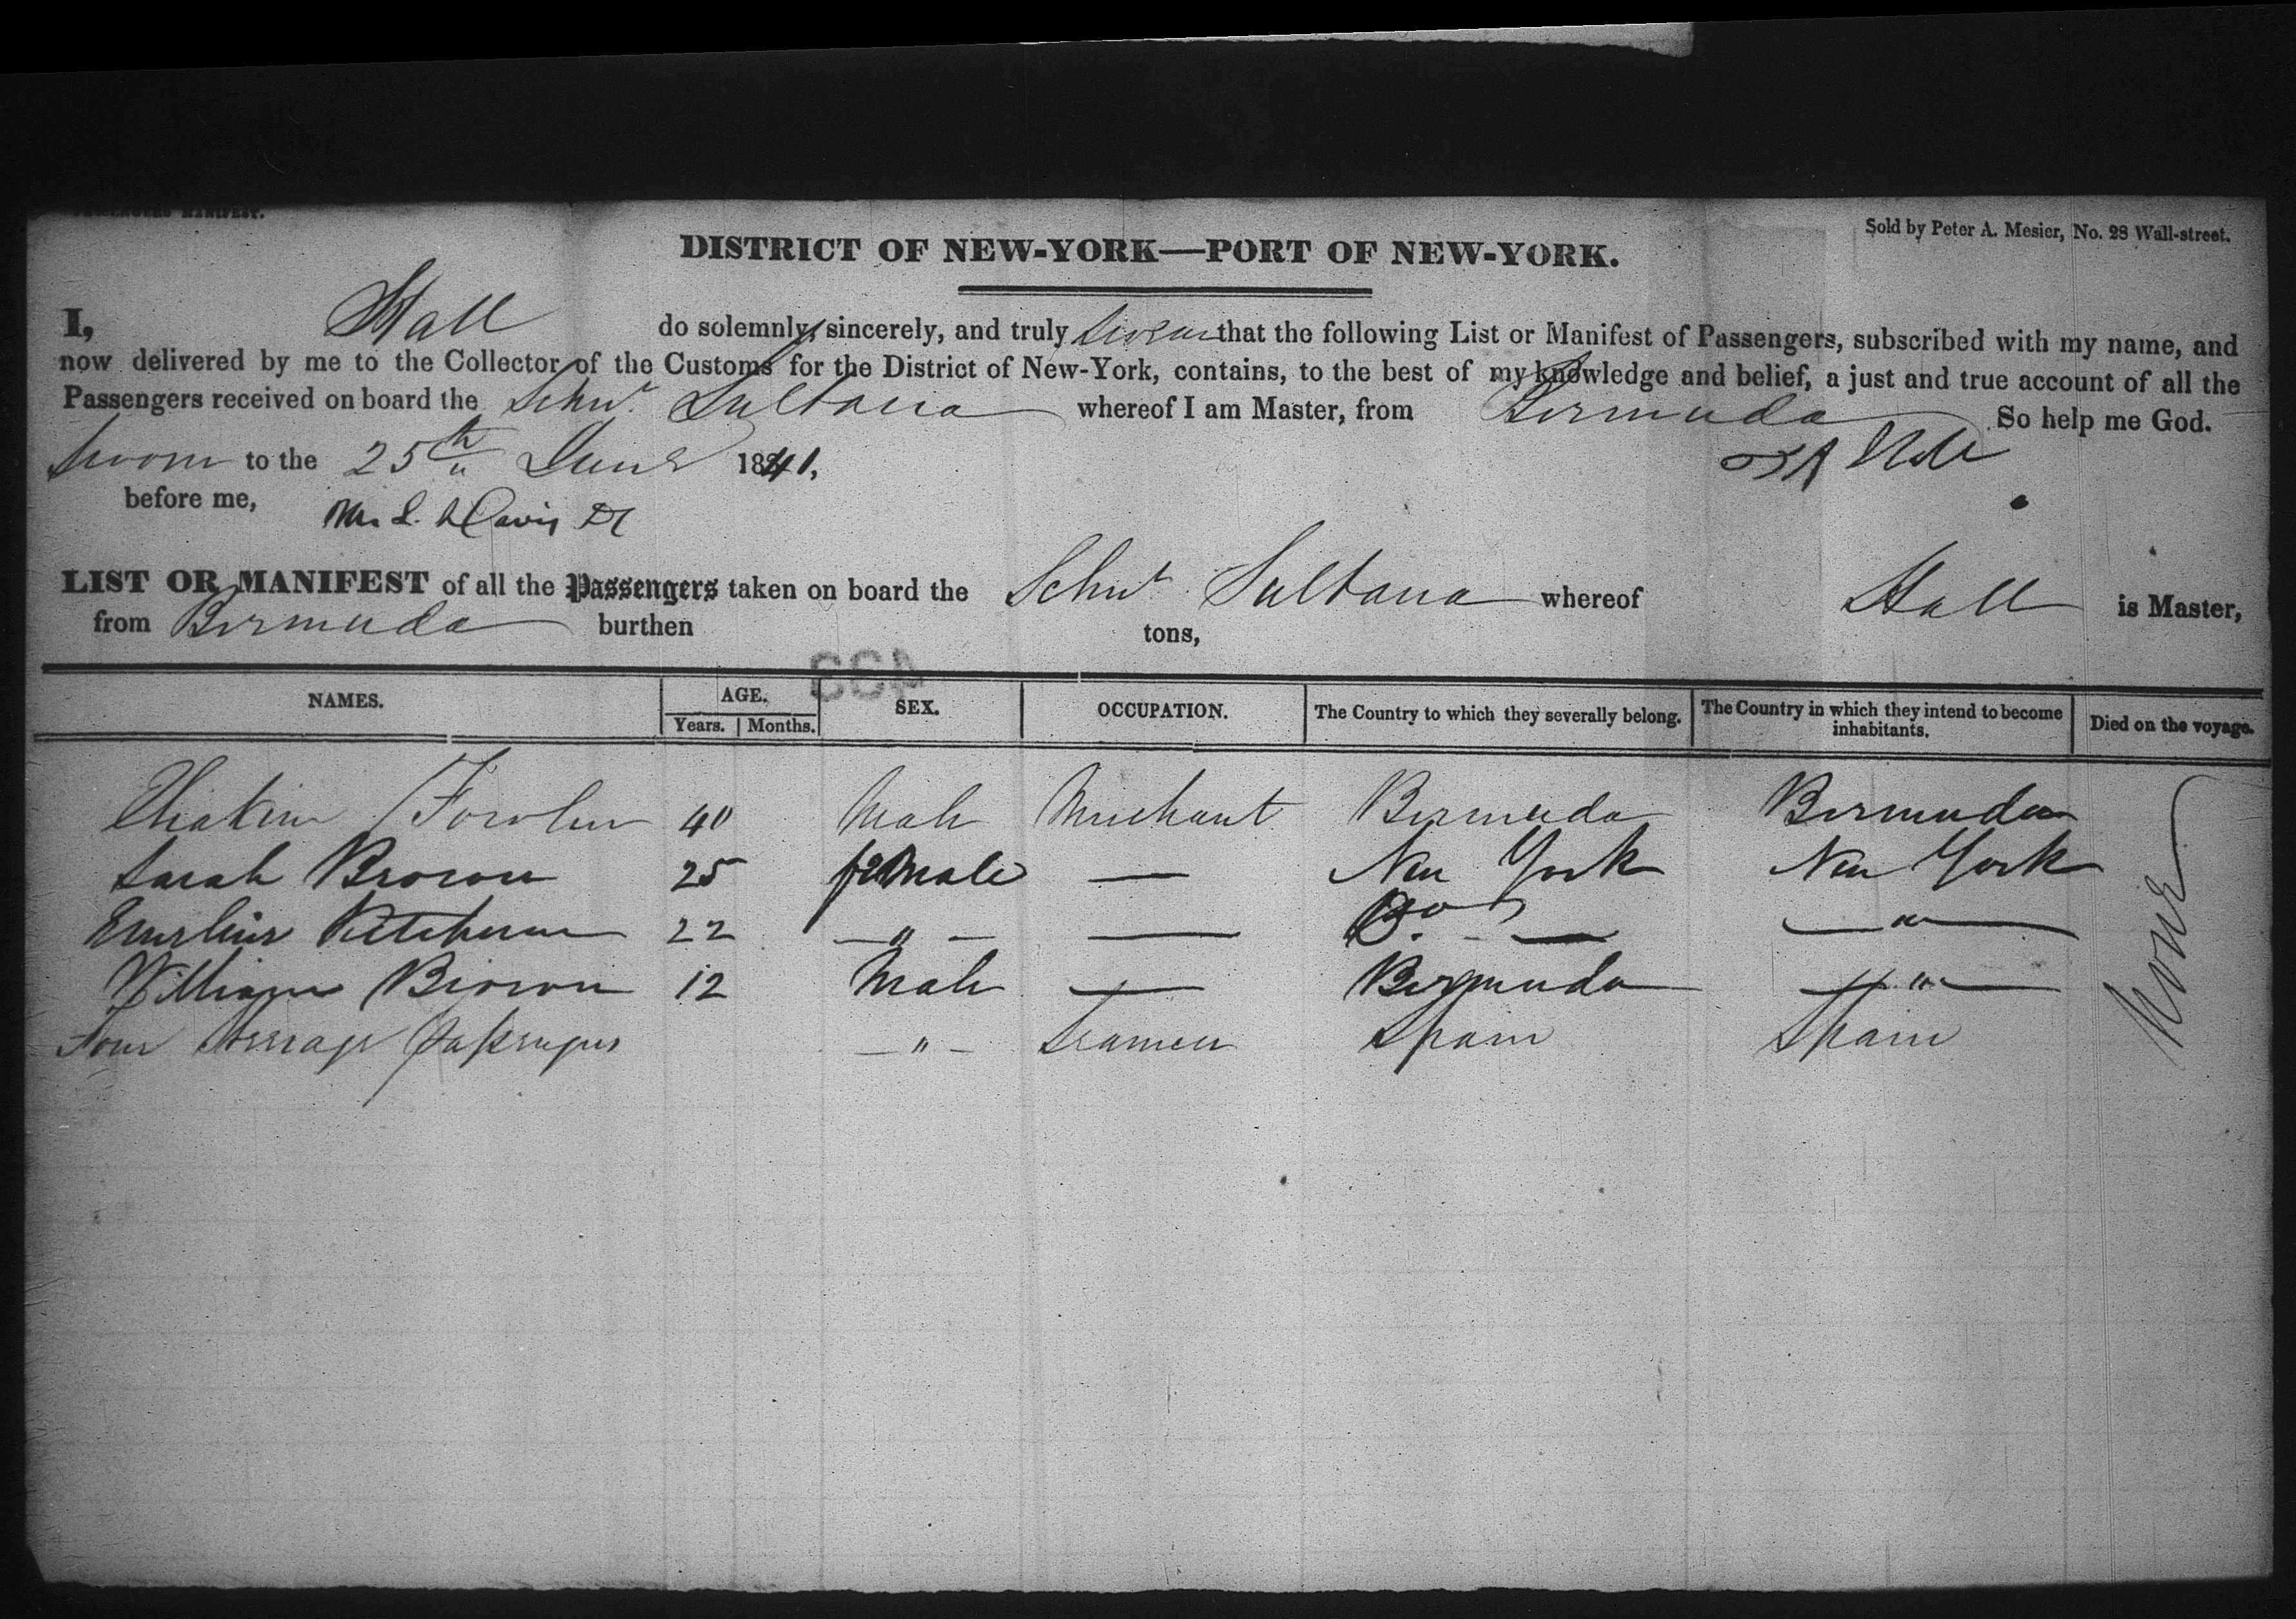 PASSENGERS MANIFEST.
Sold by Peter A. Mesier, No. 28 Wall-street.
DISTRICT OF NEW-YORK—PORT OF NEW-YORK.
I, Hall do solemnly, sincerely, and truly swear that the following List or Manifest of Passengers, subscribed with my name, and
now delivered by me to the Collector of the Customs for the District of New-York, contains, to the best of my knowledge and belief, a just and true account of all the
Passengers received on board the Schr. Sultana whereof I am Master, from Bermuda So help me God.
Sworn to the 25th June 1841,
before me,
Davis
LIST OR MANIFEST of all the Passengers taken on board the Schr Sultana whereof Hall is Master,
from Bermuda burthen tons,
NAMES. AGE. SEX. OCCUPATION. The Country to which they severally belong. The Country in which they intend to become inhabitants. Died on the voyage.
Years. Months.
Fowler 40 Male Merchant Bermuda Bermuda
Sarah Brown 25 female — New York New York
22 — " — — Do. — — " —
William Brown 12 Male — Bermuda — " —
Four Steerage Passengers — " — Seamen Spain Spain
None